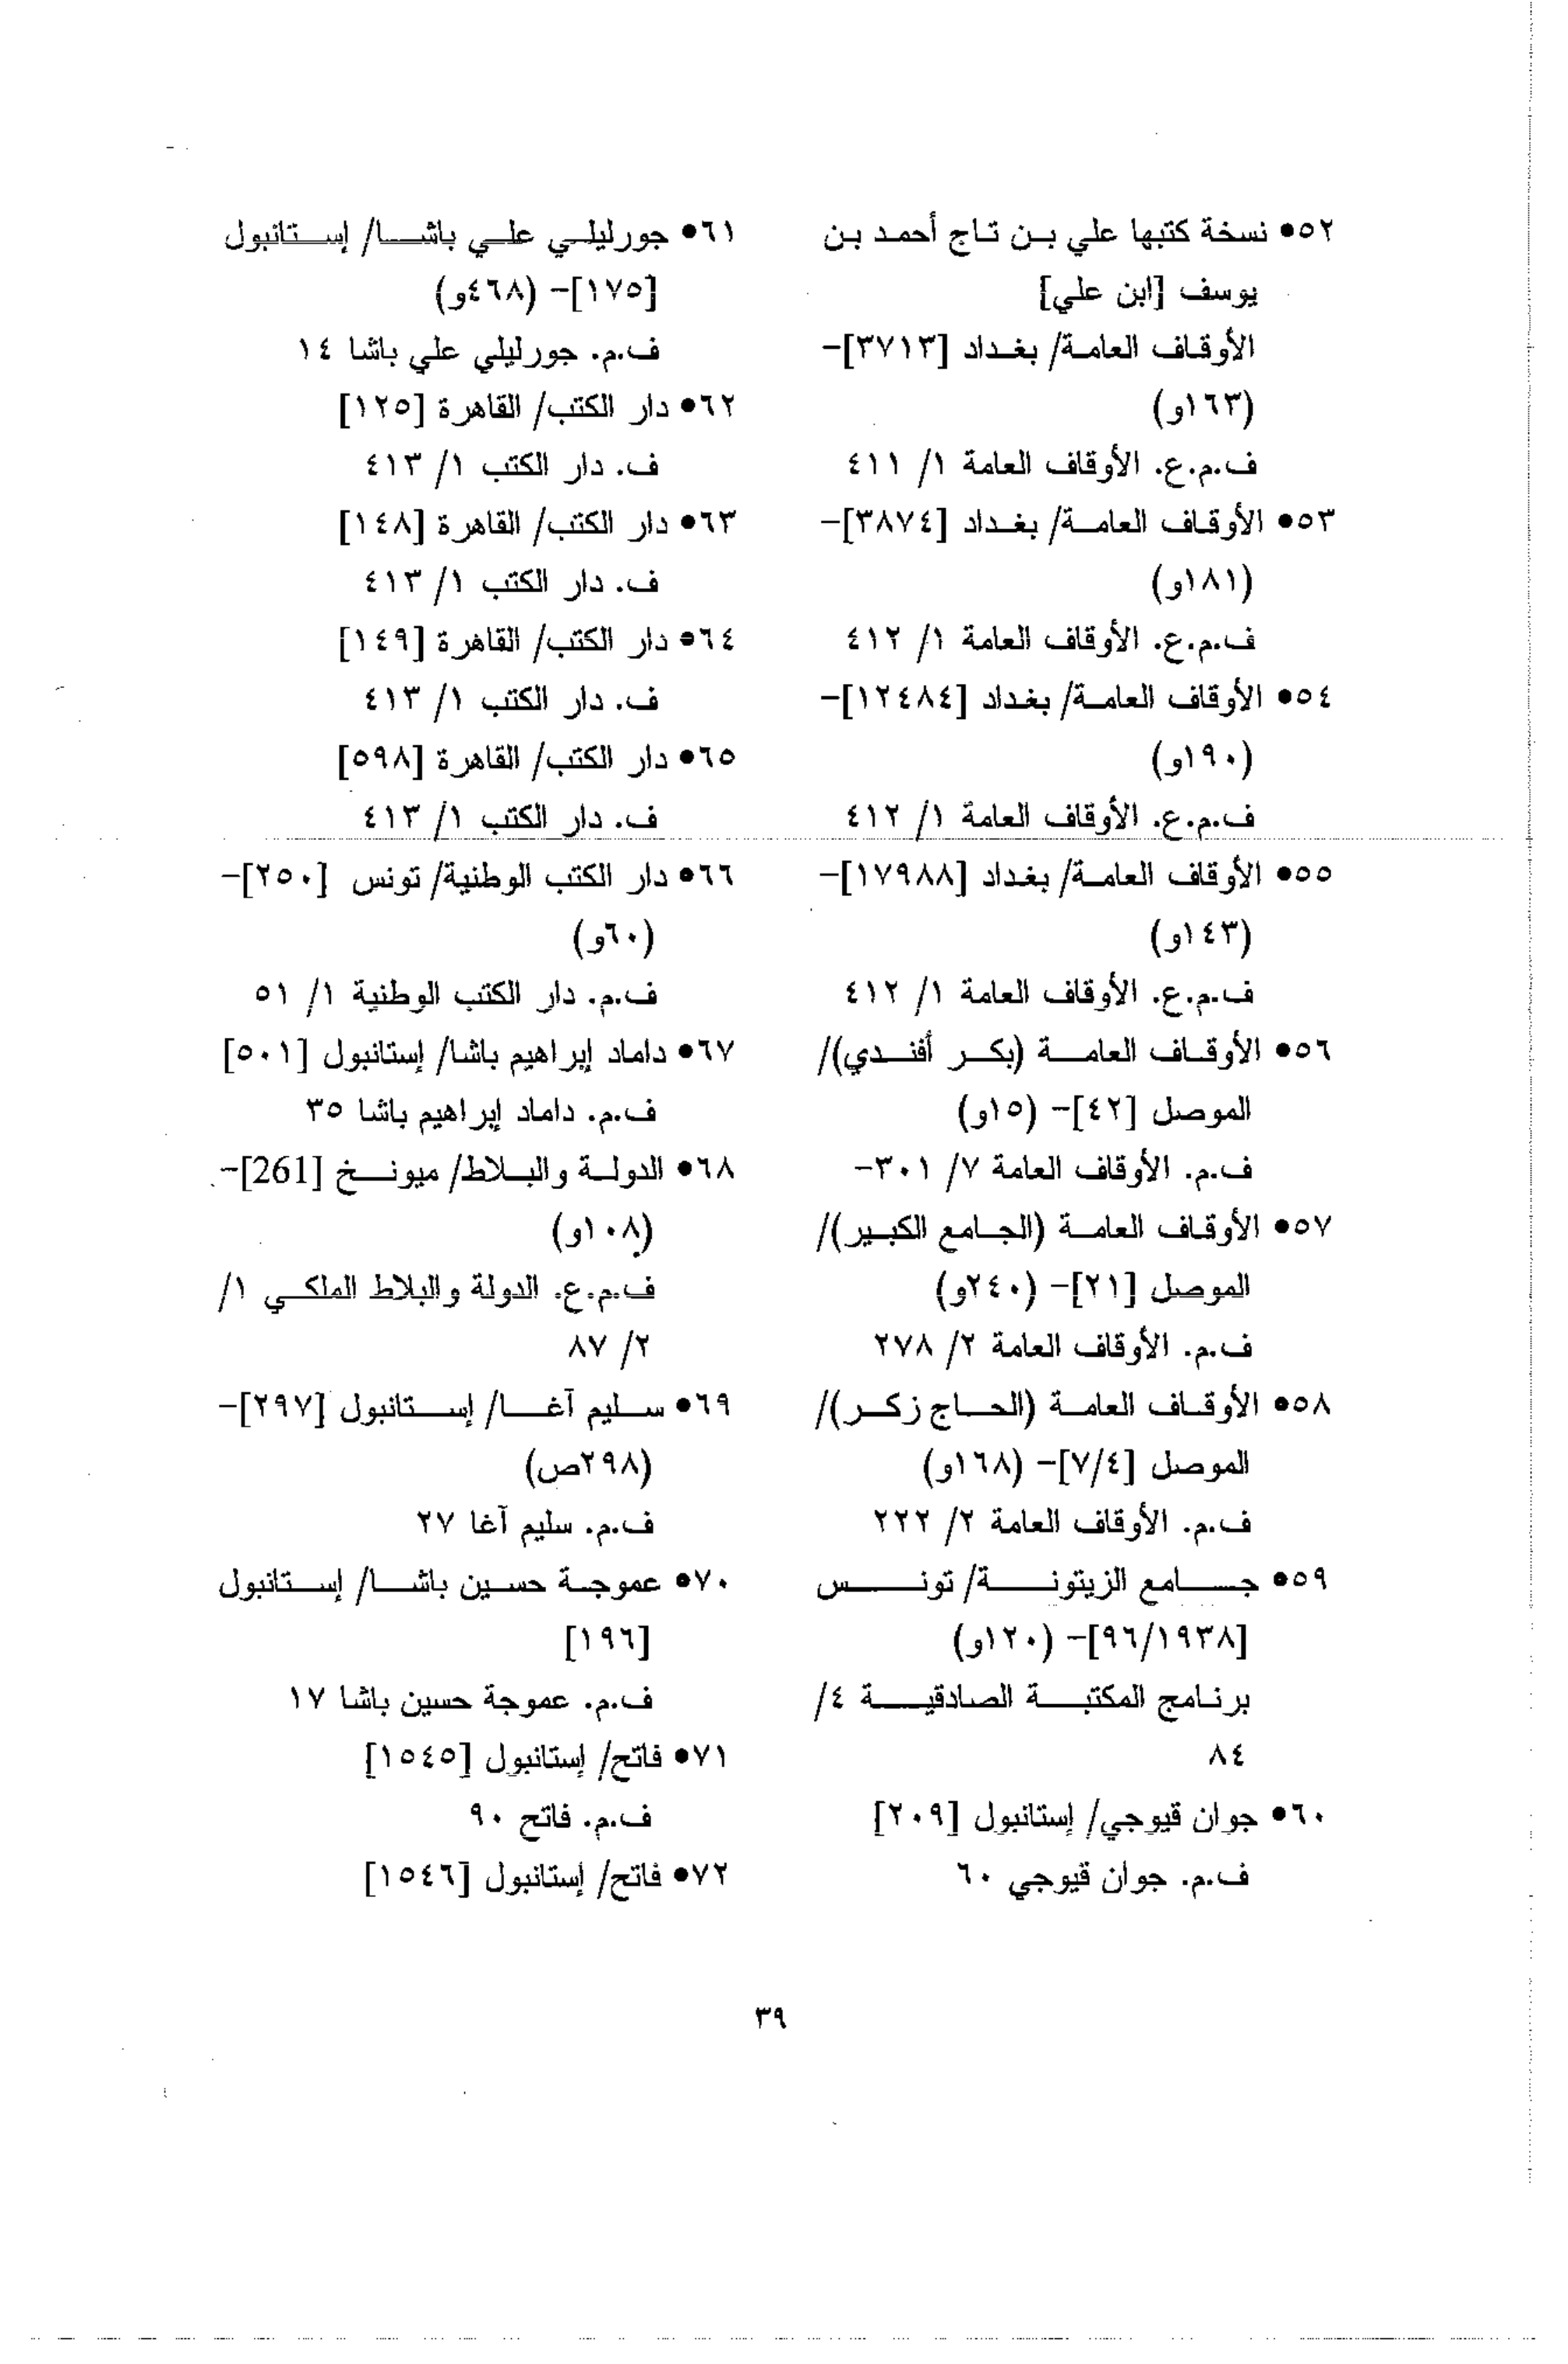 ٥٢• نسخة كتبها علي بن تاج أحمد بن
يوسف [ابن علي]
الأوقاف العامة/ بغداد [٣٧١٣]-
(١٦٣و)
ف.م.ع. الأوقاف العامة ١/ ٤١١
٥٣• الأوقاف العامة/ بغداد [٣٨٧٤]-
(١٨١و)
ف.م.ع. الأوقاف العامة ١/ ٤١٢
٥٤• الأوقاف العامة/ بغداد [١٢٤٨٤]-
(١٩٠و)
ف.م.ع. الأوقاف العامة ١/ ٤١٢
٥٥• الأوقاف العامة/ بغداد [١٧٩٨٨]-
(١٤٣و)
ف.م.ع. الأوقاف العامة ١/ ٤١٢
٥٦• الأوقاف العامة (بكر أفندي)/
الموصل [٤٢]- (١٥و)
ف.م. الأوقاف العامة ٧/ ٣٠١-
٥٧• الأوقاف العامة (الجامع الكبير)/
الموصل [٢١]- (٢٤٠و)
ف.م. الأوقاف العامة ٢/ ٢٧٨
٥٨• الأوقاف العامة (الحاج زكر)/
الموصل [٧/٤]- (١٦٨و)
ف.م. الأوقاف العامة ٢/ ٢٢٢
٥٩• جامع الزيتونة/ تونس
[٩٦/١٩٣٨]- (١٢٠و)
برنامج المكتبة الصادقية ٤/
٨٤
٦٠• جوان قيوجي/ إستانبول [٢٠٩]
ف.م. جوان قيوجي ٦٠
٦١• جورليلي علي باشا/ إستانبول
[١٧٥]- (٤٦٨و)
ف.م. جورليلي علي باشا ١٤
٦٢• دار الكتب/ القاهرة [١٢٥]
ف. دار الكتب ١/ ٤١٣
٦٣• دار الكتب/ القاهرة [١٤٨]
ف. دار الكتب ١/ ٤١٣
٦٤• دار الكتب/ القاهرة [١٤٩]
ف. دار الكتب ١/ ٤١٣
٦٥• دار الكتب/ القاهرة [٥٩٨]
ف. دار الكتب ١/ ٤١٣
٦٦• دار الكتب الوطنية/ تونس [٢٥٠]-
(٦٠و)
ف.م. دار الكتب الوطنية ١/ ٥١
٦٧• داماد إبراهيم باشا/ إستانبول [٥٠١]
ف.م. داماد إبراهيم باشا ٣٥
٦٨• الدولة والبلاط/ ميونخ [261]-
(١٠٨و)
ف.م.ع. الدولة والبلاط الملكي ١/
٢/ ٨٧
٦٩• سليم آغا/ إستانبول [٢٩٧]-
(٢٩٨ص)
ف.م. سليم آغا ٢٧
٧٠• عموجة حسين باشا/ إستانبول
[١٩٦]
ف.م. عموجة حسين باشا ١٧
٧١• فاتح/ إستانبول [١٥٤٥]
ف.م. فاتح ٩٠
٧٢• فاتح/ إستانبول [١٥٤٦]
٣٩